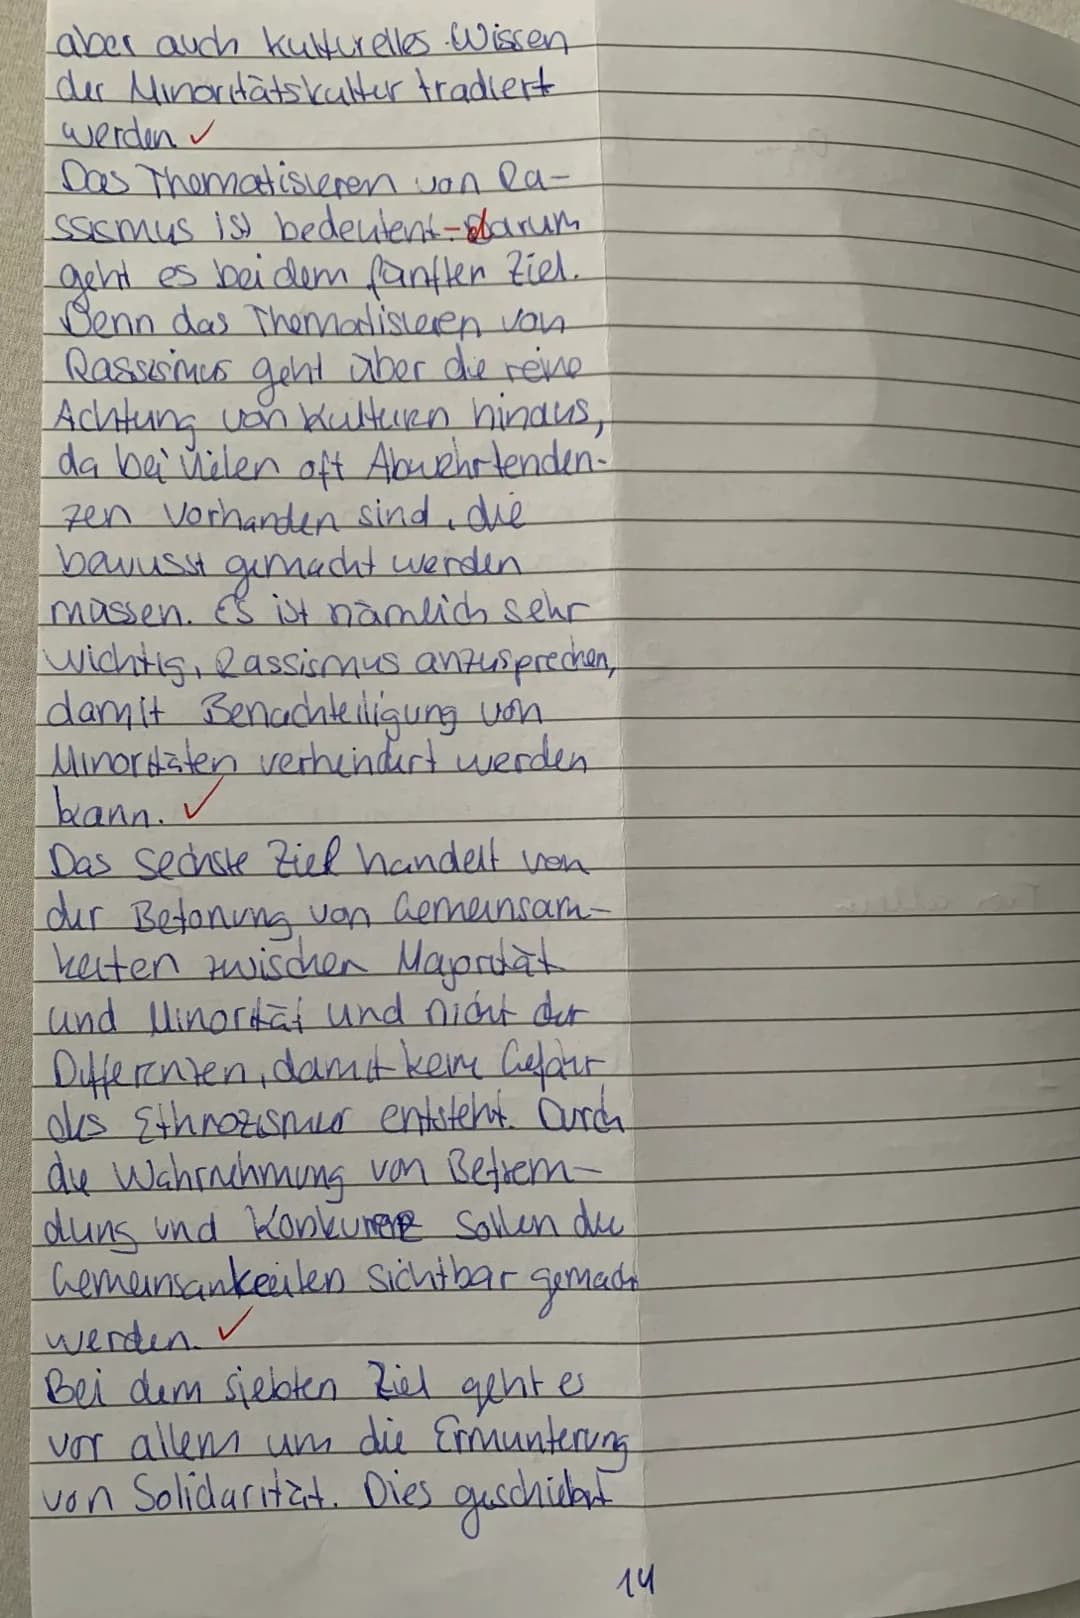 aber auch kulturelles Wissen
der Minoritätskultur tradiert
werden ✓
Das Thematisieren von Ra-
ssismus ist bedeutent - darum
geht es bei dem fünften Ziel.
Denn das Thematisieren von
Rassismus geht über die reine
Achtung von Kulturen hinaus,
da bei vielen oft Abwehrtenden-
zen vorhanden sind, die
bewusst gemacht werden
müssen. Es ist nämlich sehr
wichtig, Rassismus anzusprechen,
damit Benachteiligung von
Minoritäten verhindert werden
kann. ✓
Das sechste Ziel handelt von
der Betonung von Gemeinsam-
keiten zwischen Majorität
und Minorität und nicht der
Differenzen, damit keine Gefahr
des Ethnozismus entsteht. Durch
die Wahrnehmung von Befrem-
dung und sollen die
Gemeinsamkeiten sichtbar gemacht
werden. ✓
Bei dem siebten Ziel geht es
vor allem um die Ermunterung
von Solidarität. Dies geschieht
14